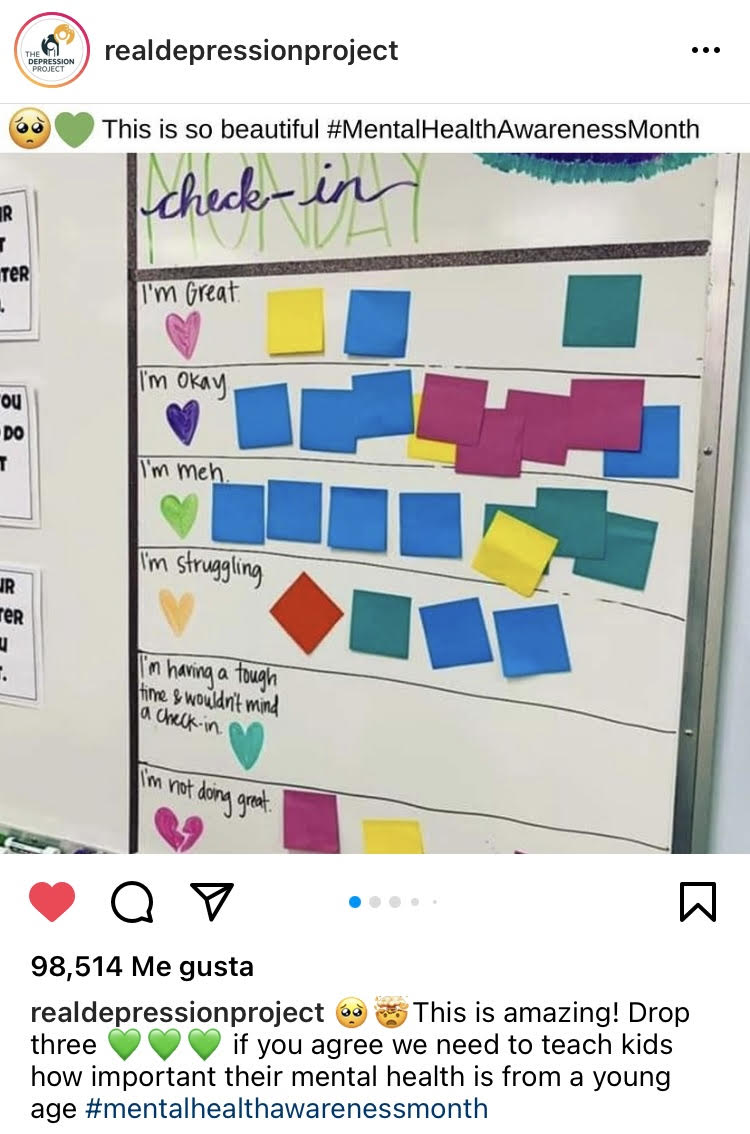 THE
DEPRESSION
PROJECT
realdepressionproject
🥺💚 This is so beautiful #MentalHealthAwarenessMonth
MONDAY
check-in
R
T
TER
OU
DO
T
UR
TER
U
I'm Great.
I'm Okay
I'm meh.
I'm struggling
I'm having a tough
time & wouldn't mind
a check-in.
I'm not doing great.
98,514 Me gusta
realdepressionproject 🥺🤯This is amazing! Drop
three 💚💚💚 if you agree we need to teach kids
how important their mental health is from a young
age #mentalhealthawarenessmonth